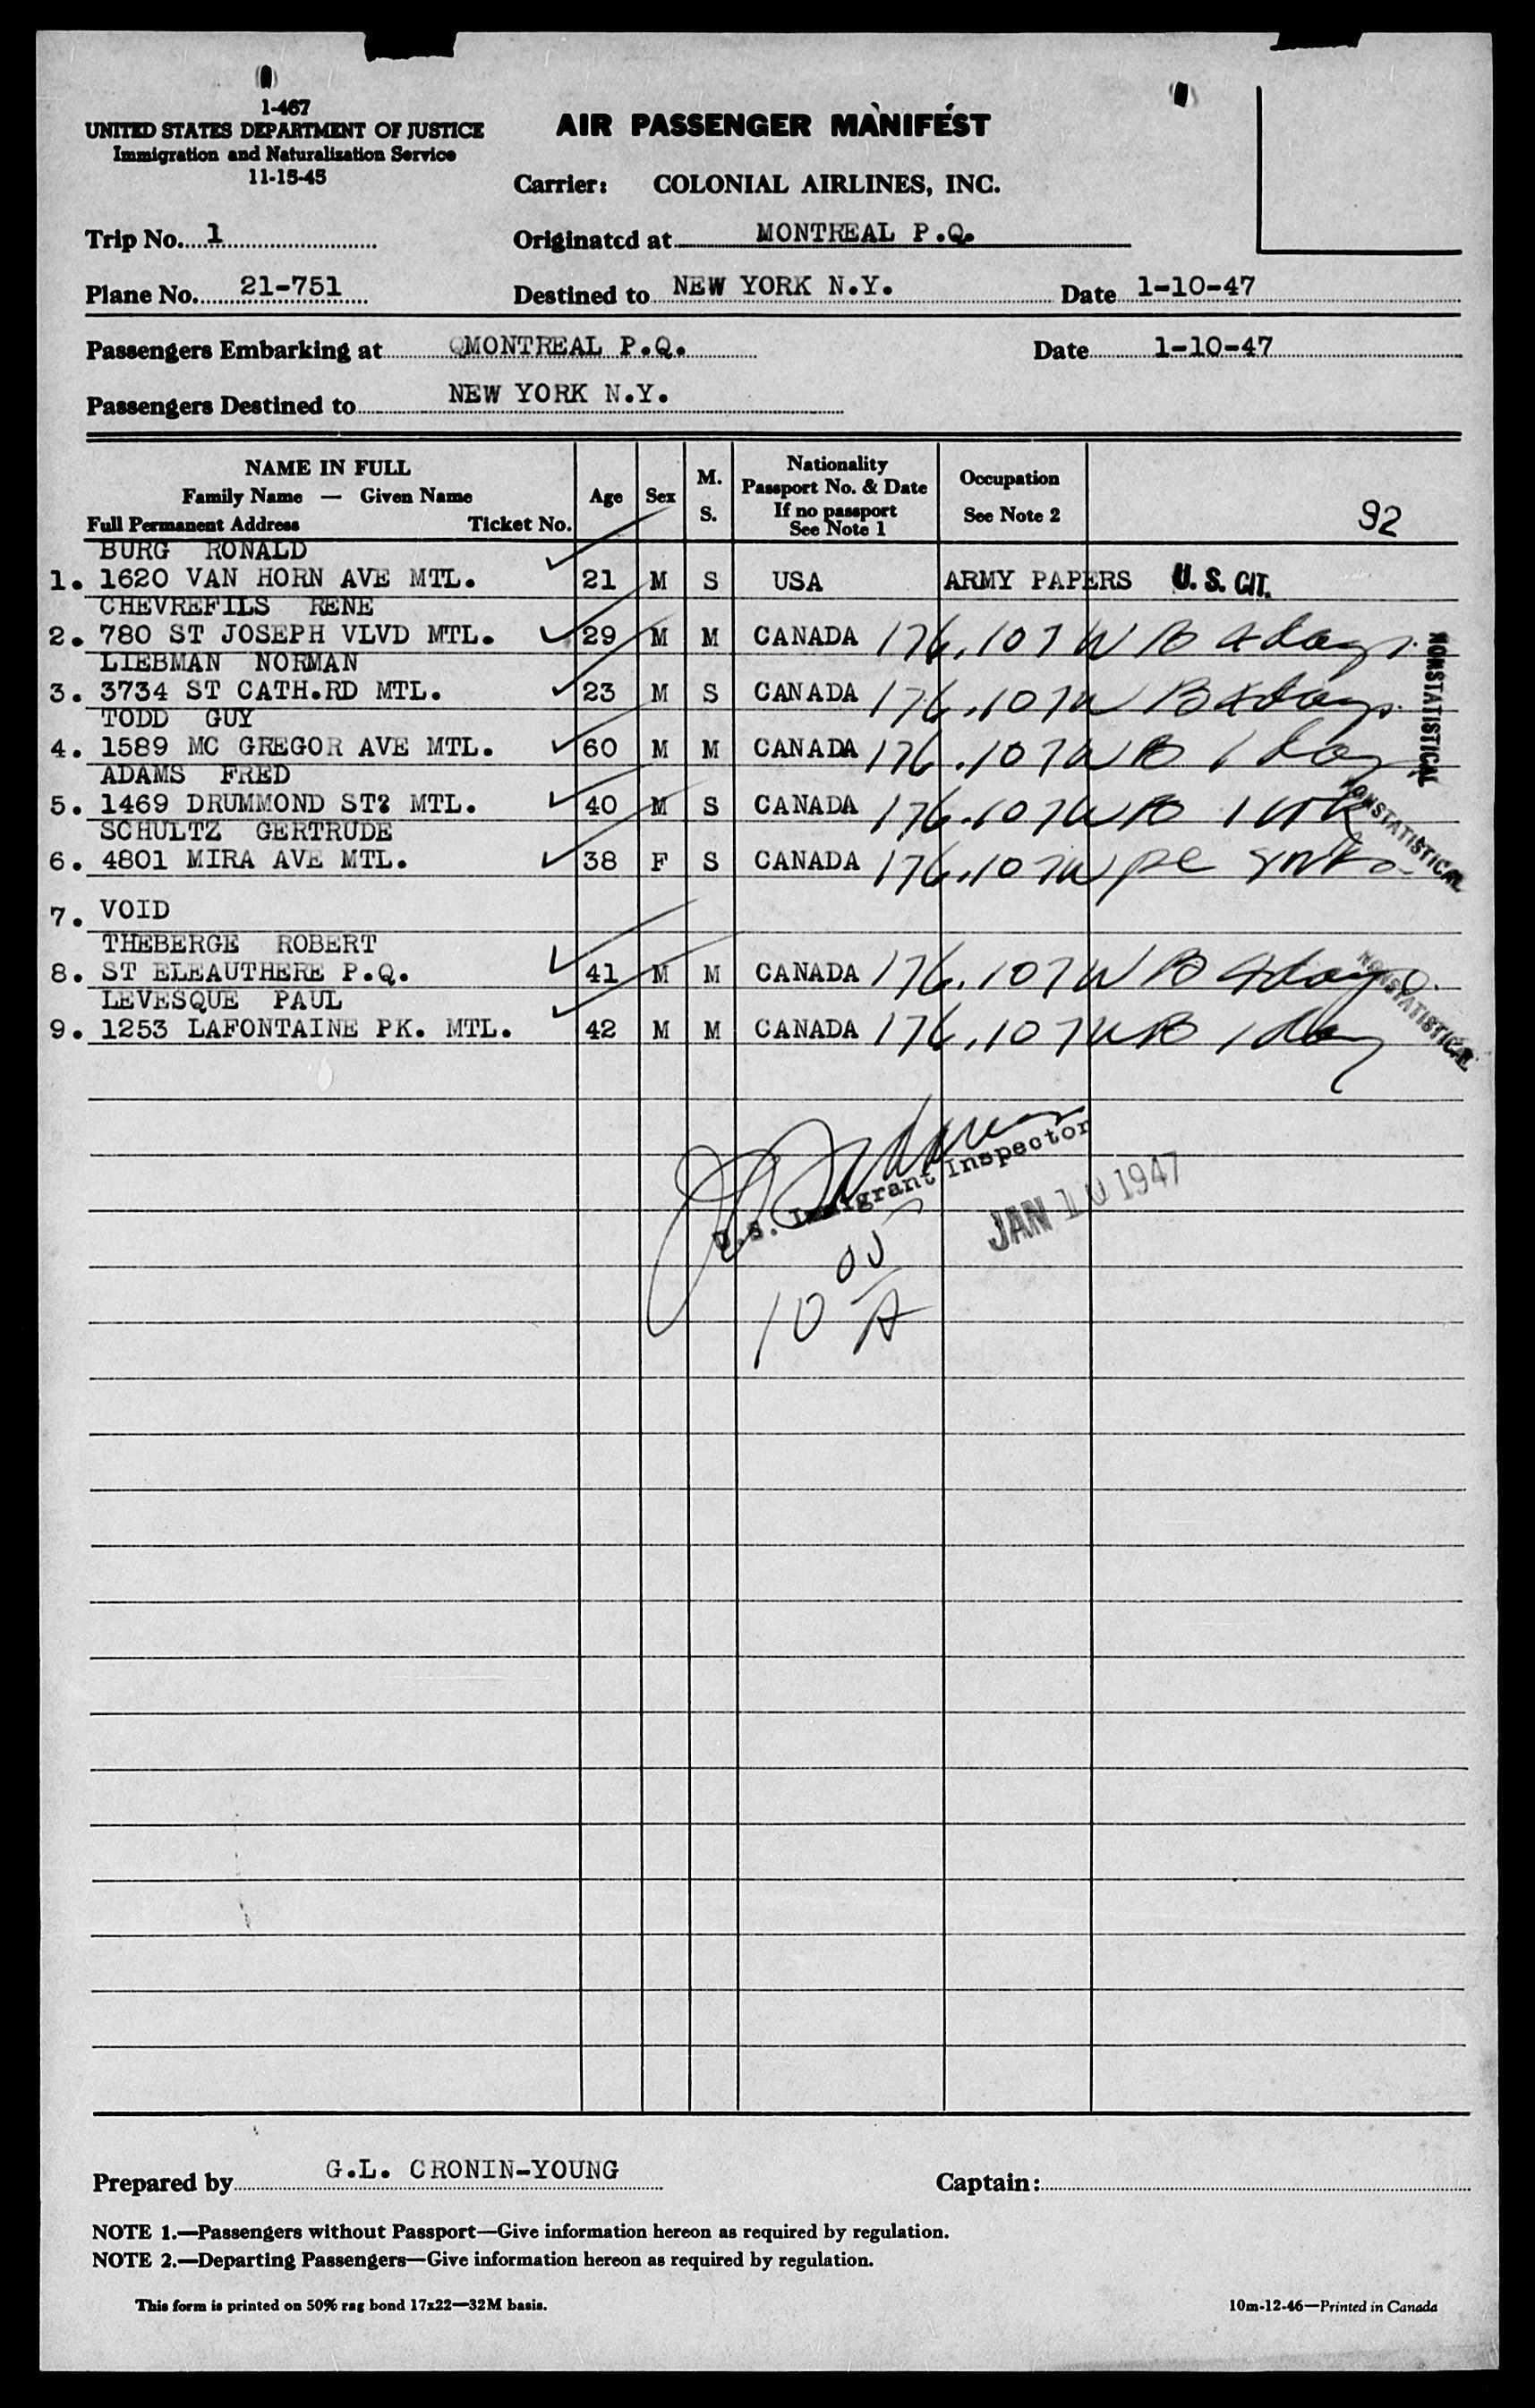 1-467
UNITED STATES DEPARTMENT OF JUSTICE
Immigration and Naturalization Service
11-15-45
AIR PASSENGER MANIFEST
Carrier: COLONIAL AIRLINES, INC.
Trip No. 1 Originated at MONTREAL P.Q.
Plane No. 21-751 Destined to NEW YORK N.Y. Date 1-10-47
Passengers Embarking at QMONTREAL P.Q. Date 1-10-47
Passengers Destined to NEW YORK N.Y.
NAME IN FULL
Family Name — Given Name
Full Permanent Address Ticket No.
Age
Sex
M.
S.
Nationality
Passport No. & Date
If no passport
See Note 1
Occupation
See Note 2
92
BURG RONALD
1. 1620 VAN HORN AVE MTL. 21 M S USA ARMY PAPERS U.S. CIT.
CHEVREFILS RENE
2. 780 ST JOSEPH VLVD MTL. 29 M M CANADA 176.107 W B 4 days
LIEBMAN NORMAN
3. 3734 ST CATH.RD MTL. 23 M S CANADA 176.107 W B days
TODD GUY
4. 1589 MC GREGOR AVE MTL. 60 M M CANADA 176.107 W B 1 day
NONSTATISTICAL
ADAMS FRED
5. 1469 DRUMMOND ST? MTL. 40 M S CANADA 176.107 W B 1 wk
SCHULTZ GERTRUDE
6. 4801 MIRA AVE MTL. 38 F S CANADA 176.107 W
NONSTATISTICAL
7. VOID
THEBERGE ROBERT
8. ST ELEAUTHERE P.Q. 41 M M CANADA 176.107 W B 4 days
LEVESQUE PAUL
9. 1253 LAFONTAINE PK. MTL. 42 M M CANADA 176.107 W B 1 day
NONSTATISTICAL
U.S. Immigrant Inspector
JAN 10 1947
10 05 A
Prepared by G.L. CRONIN-YOUNG Captain:
NOTE 1.—Passengers without Passport—Give information hereon as required by regulation.
NOTE 2.—Departing Passengers—Give information hereon as required by regulation.
This form is printed on 50% rag bond 17x22—32M basis. 10m-12-46—Printed in Canada